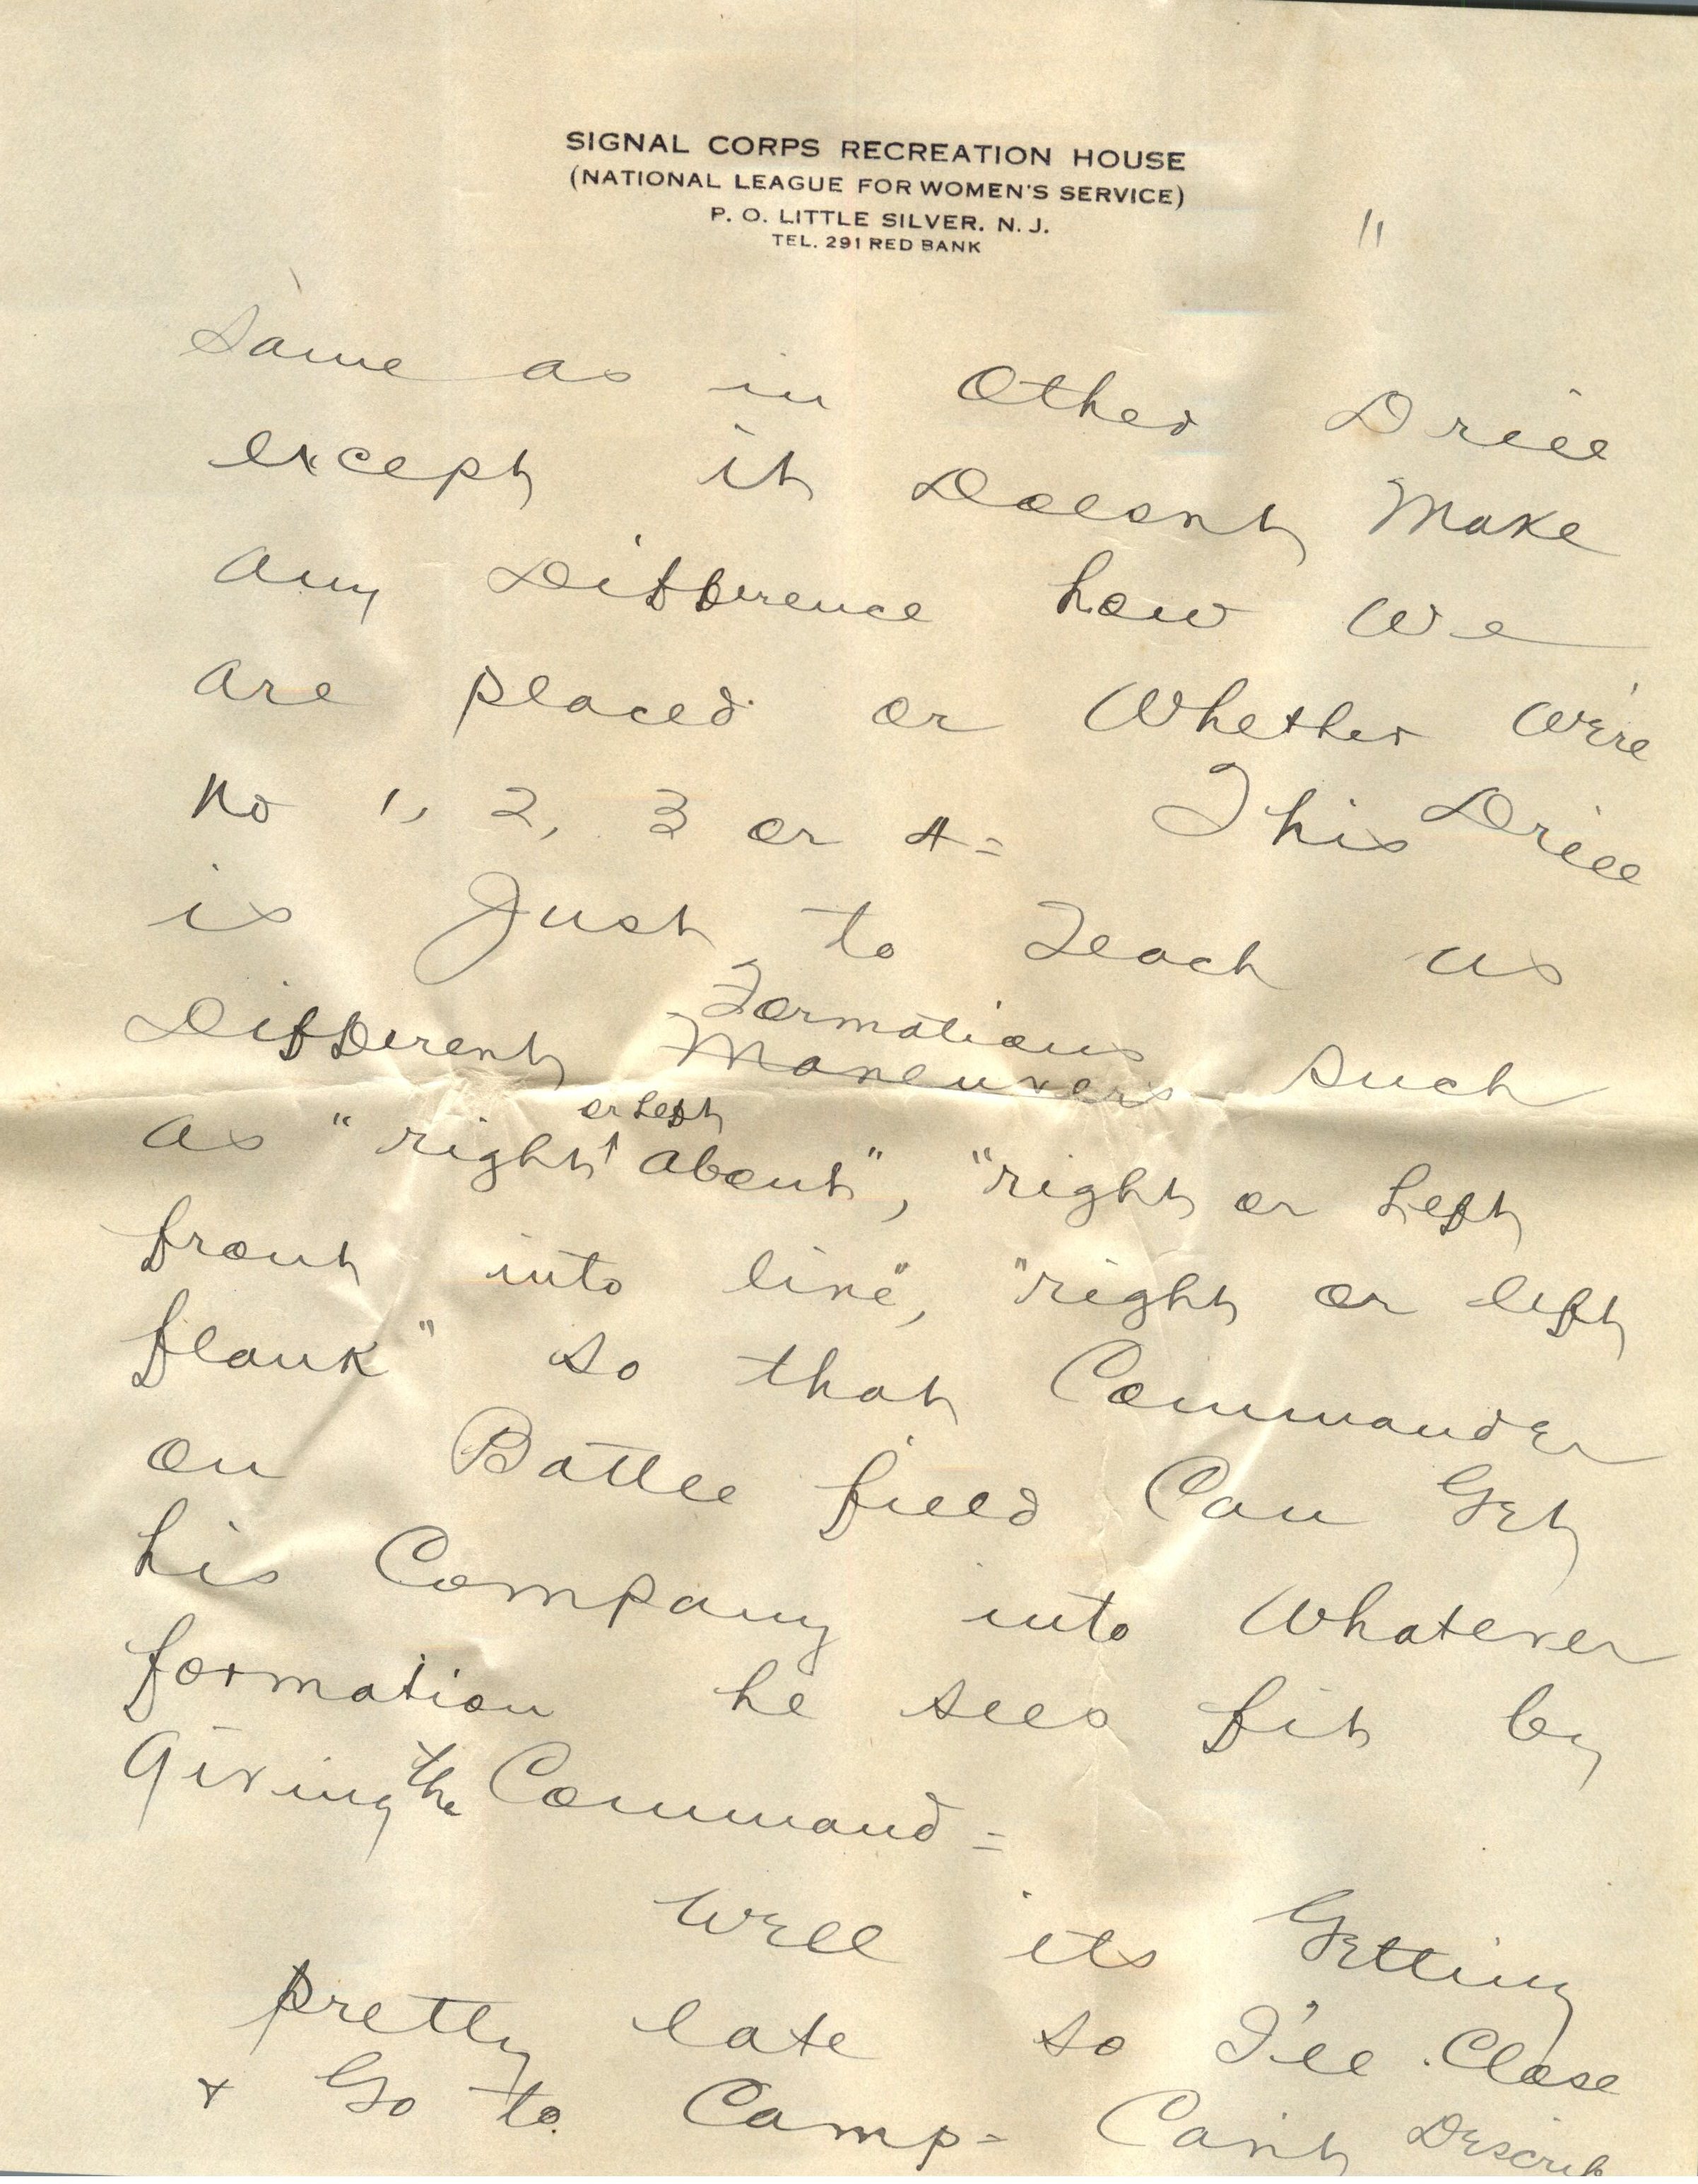 SIGNAL CORPS RECREATION HOUSE
(NATIONAL LEAGUE FOR WOMEN'S SERVICE)
P. O. LITTLE SILVER, N. J.
TEL. 291 RED BANK
11
Same as in Other Drill
except it Doesnt Make
any Difference how we
are placed or Whether We're
No 1, 2, 3 or 4= This Drill
is Just to Teach us
Different Maneuvers Formations such
as "right or Left about", "right or Left
front into line", "right or left
flank" so that Commander
on Battle field Can Get
his Company into Whatever
formation he sees fit by
Giving the Command =
Well its Getting
pretty late so I'll Close
+ Go to Camp = Can't Describ